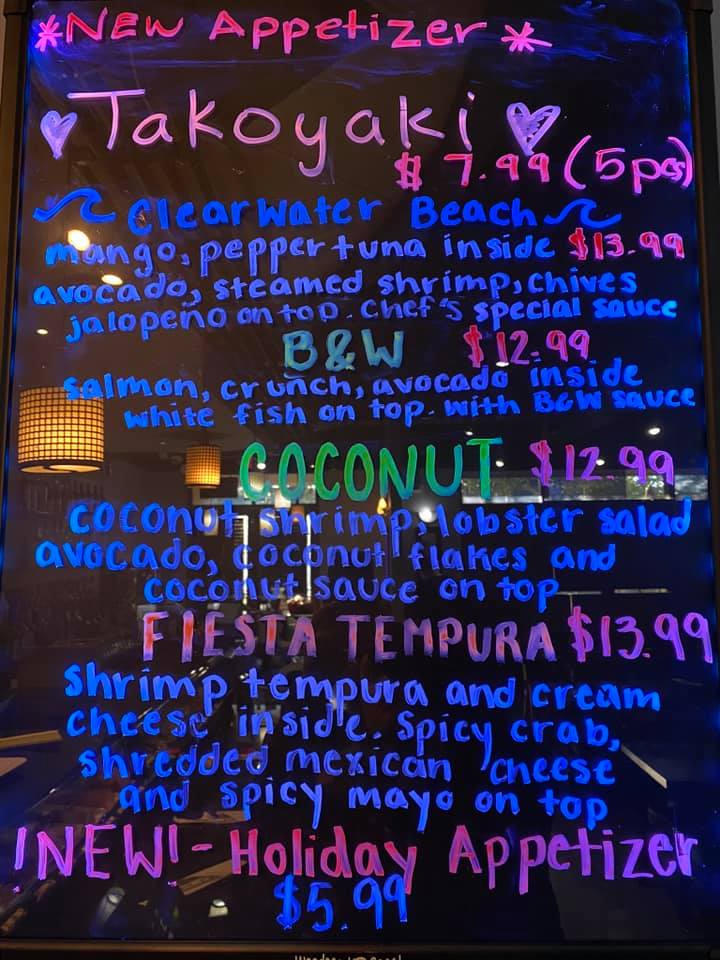 *New Appetizer*
Takoyaki
$7.99 (5pcs)
Clearwater Beach
mango, pepper tuna inside $13.99
avocado, steamed shrimp, chives
jalopeño on top. Chef's special sauce
B&W $12.99
salmon, crunch, avocado inside
white fish on top. with B&W sauce
COCONUT $12.99
coconut shrimp, lobster salad
avocado, coconut flakes and
coconut sauce on top
FIESTA TEMPURA $13.99
shrimp tempura and cream
cheese inside. Spicy crab,
shredded mexican cheese
and spicy mayo on top
!NEW! - Holiday Appetizer
$5.99